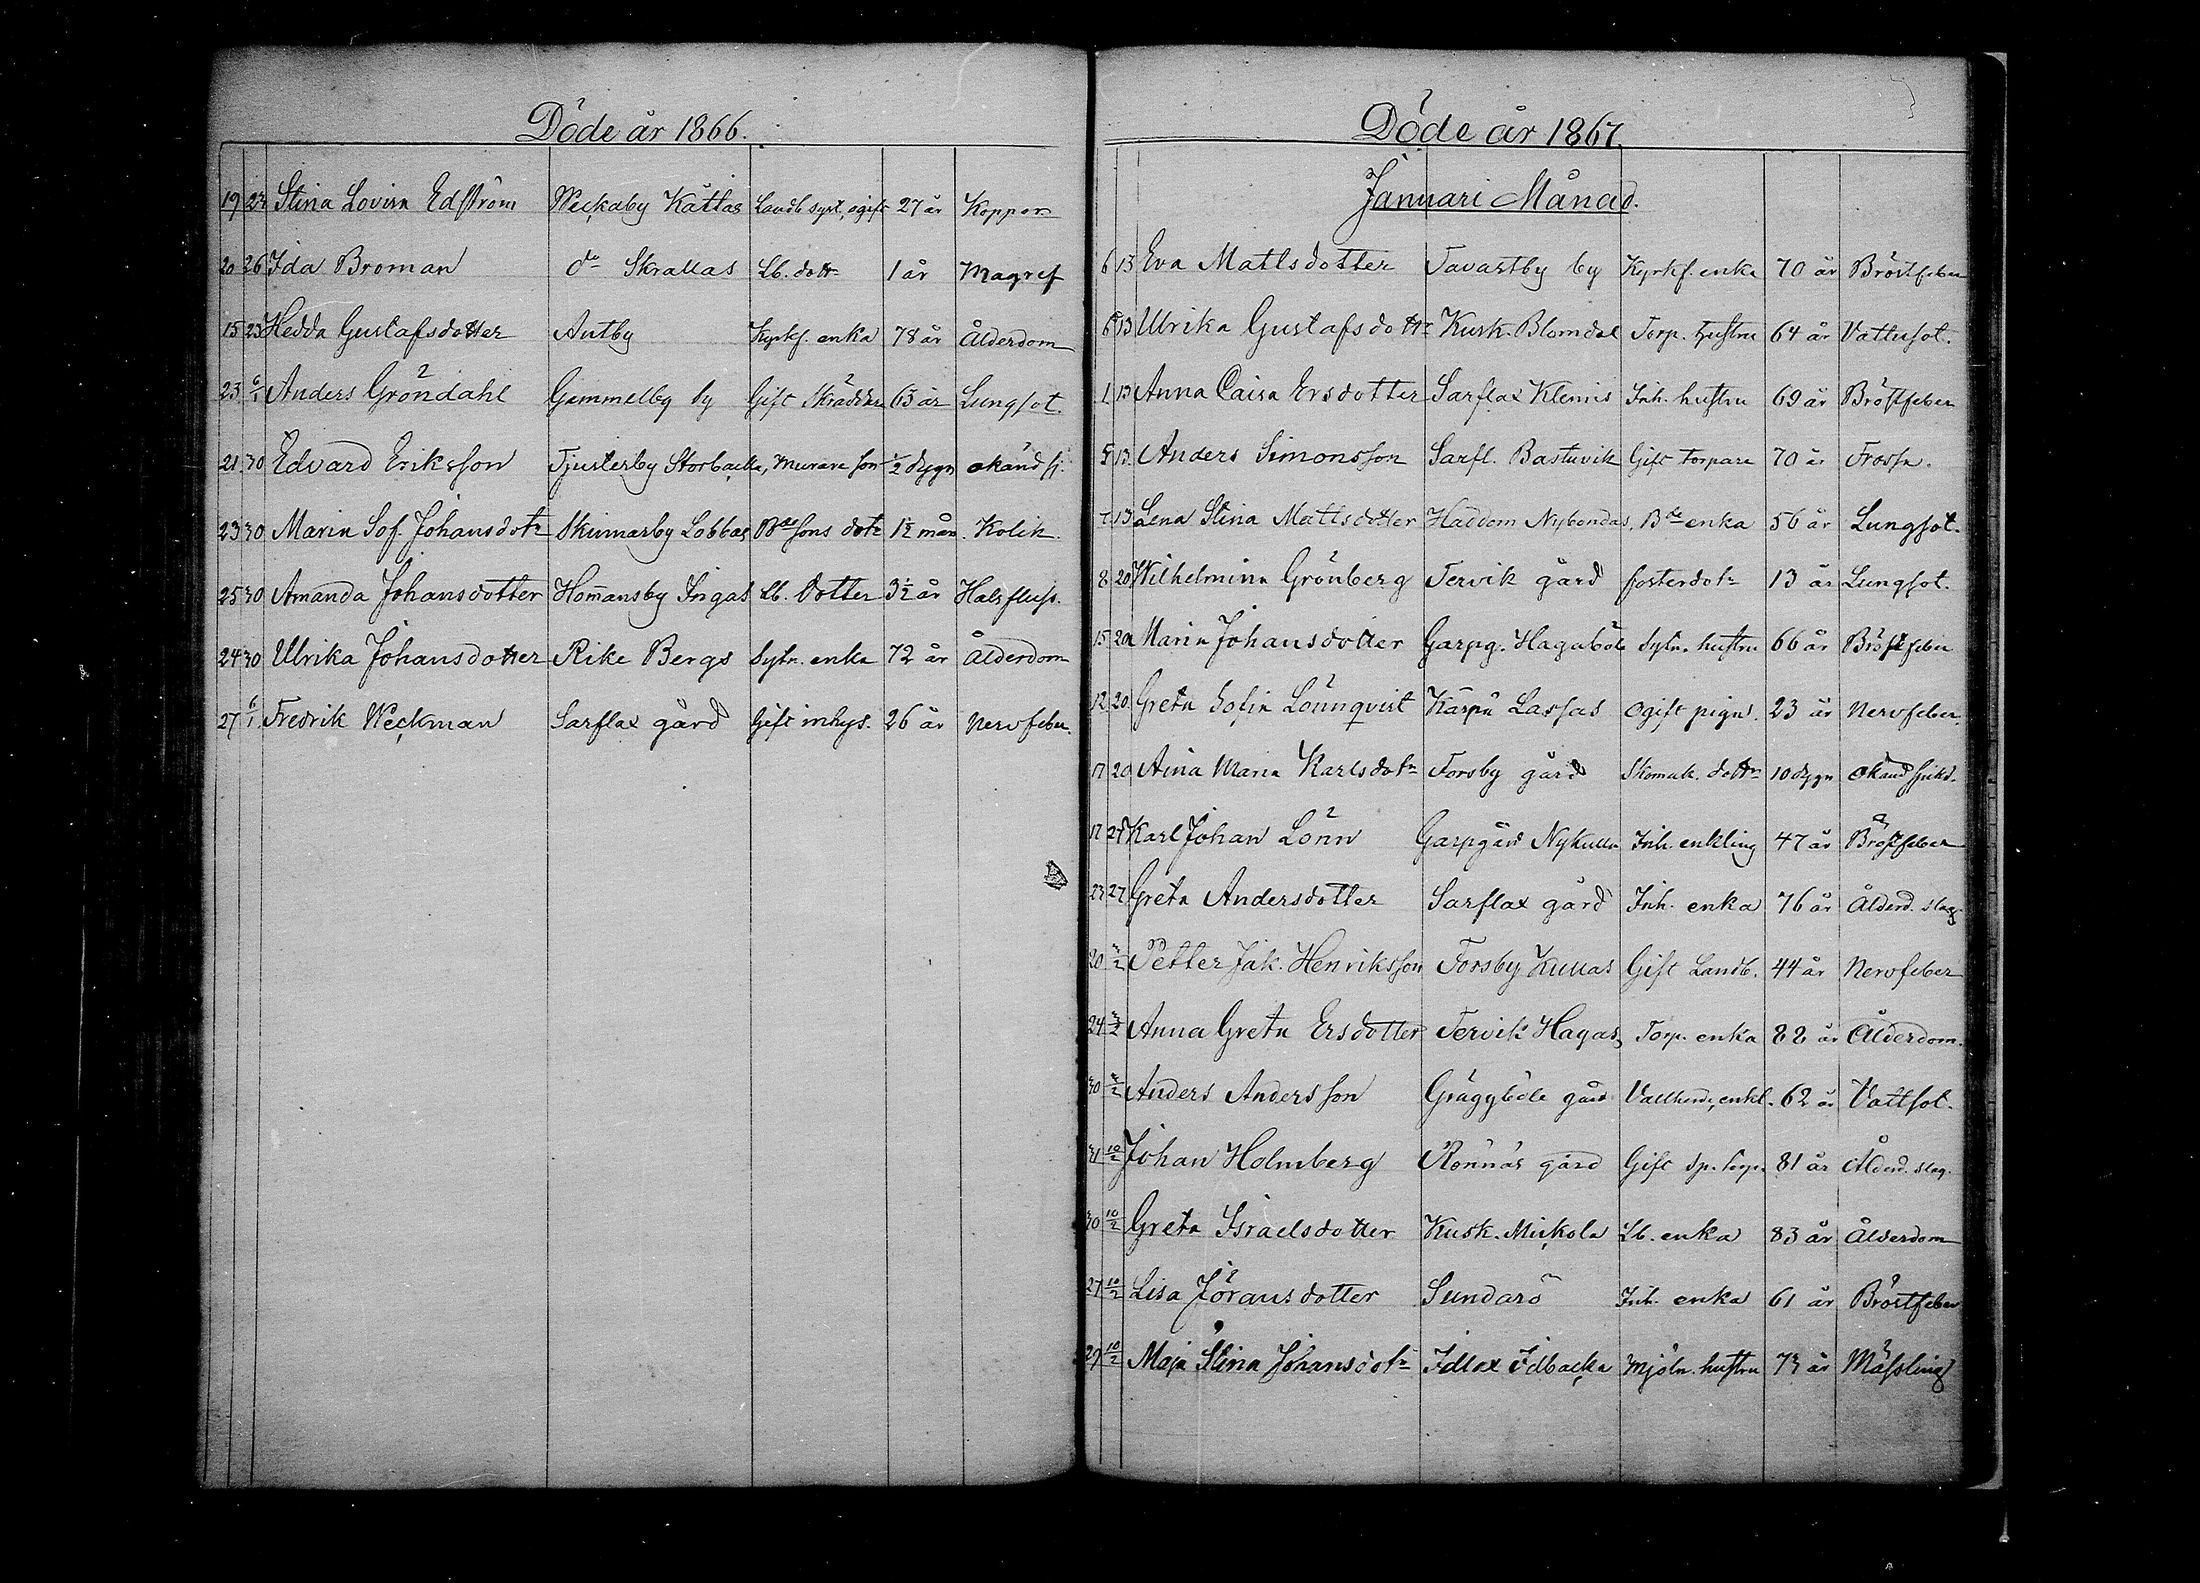 Döde år 1866.
19 23 Stina Lovisa Edström Weckaby Kättas Landb. syst, ogift 27 år Koppor
20 26 Ida Broman do Skrallas Lb. dottr 1 år Magref
15 23 Hedda Gustafsdotter Antby Kyrkf. enka 78 år Ålderdom
23 6/1 Anders Gröndahl Gammelby by Gift Skräddare 63 år Lungsot.
21 30 Edvard Eriksson Tjusterby Storbacka, murare son 1/2 dygn okänd sj.
23 30 Maria Sof. Johansdotr Skinnarby Lobbas Bde sons dotr 1 1/2 mån. Kolik.
25 30 Amanda Johansdotter Homansby Ingas Lb. Dotter 3 1/2 år Halsfluss.
24 30 Ulrika Johansdotter Rike Bergs Sytn. enka 72 år Ålderdom
27 6/1 Fredrik Weckman Sarflax gård Gift inhys. 26 år Nervfeber.
Döde år 1867.
Januari Månad.
6 13 Eva Mattsdotter Tavastby by Kyrkf. enka 70 år Bröstfeber
6 13 Ulrika Gustafsdottr Kusk. Blomdal Torp. hustru 64 år Vattusot.
1 13 Anna Caisa Ersdotter Sarflax Klemis Inh. hustru 69 år Bröstfeber
5 13 Anders Simonsson Sarfl. Bastuvik Gift torpare 70 år Frossa.
7 13 Lena Stina Mattsdotter Haddom Nybondas, Bde enka 56 år Lungsot.
8 20 Wilhelmina Grönberg Tervik gård fosterdotr 13 år Lungsot.
15 20 Maria Johansdotter Garpg. Hagaböle Sytn. hustru 66 år Bröstfeber
12 20 Greta Sofia Lönnqvist Kärpä Lassas Ogift piga. 23 år Nervfeber.
17 20 Aina Maria Karlsdotr Forsby gård Skomak. dottr 10 dygn Okänd sjukd.
17 27 Karl Johan Lönn Garpgård Nykulla Inh. enkling 47 år Bröstfeber
23 27 Greta Andersdotter Sarflax gård Inh. enka 76 år Ålderd. slag
20 3/2 Petter Jak. Henriksson Forsby Kullas Gift Landb. 44 år Nervfeber
24 3/2 Anna Greta Ersdotter Tervik Hagas, Torp. enka 88 år Ålderdom.
30 3/2 Anders Andersson Gräggböle gård Vallherde, enkl. 62 år Vattsot.
31 10/2 Johan Holmberg Rönnäs gård Gift Sp. torp. 81 år Ålderd. slag.
30 10/2 Greta Israelsdotter Kusk. Mickola Lb. enka 83 år Ålderdom
27 10/2 Lisa Jöransdotter Sundarö Inh. enka 61 år Bröstfeber
29 10/2 Maja Stina Johansdotr Idlax Idbacka Mjöln. hustru 73 år Mässling